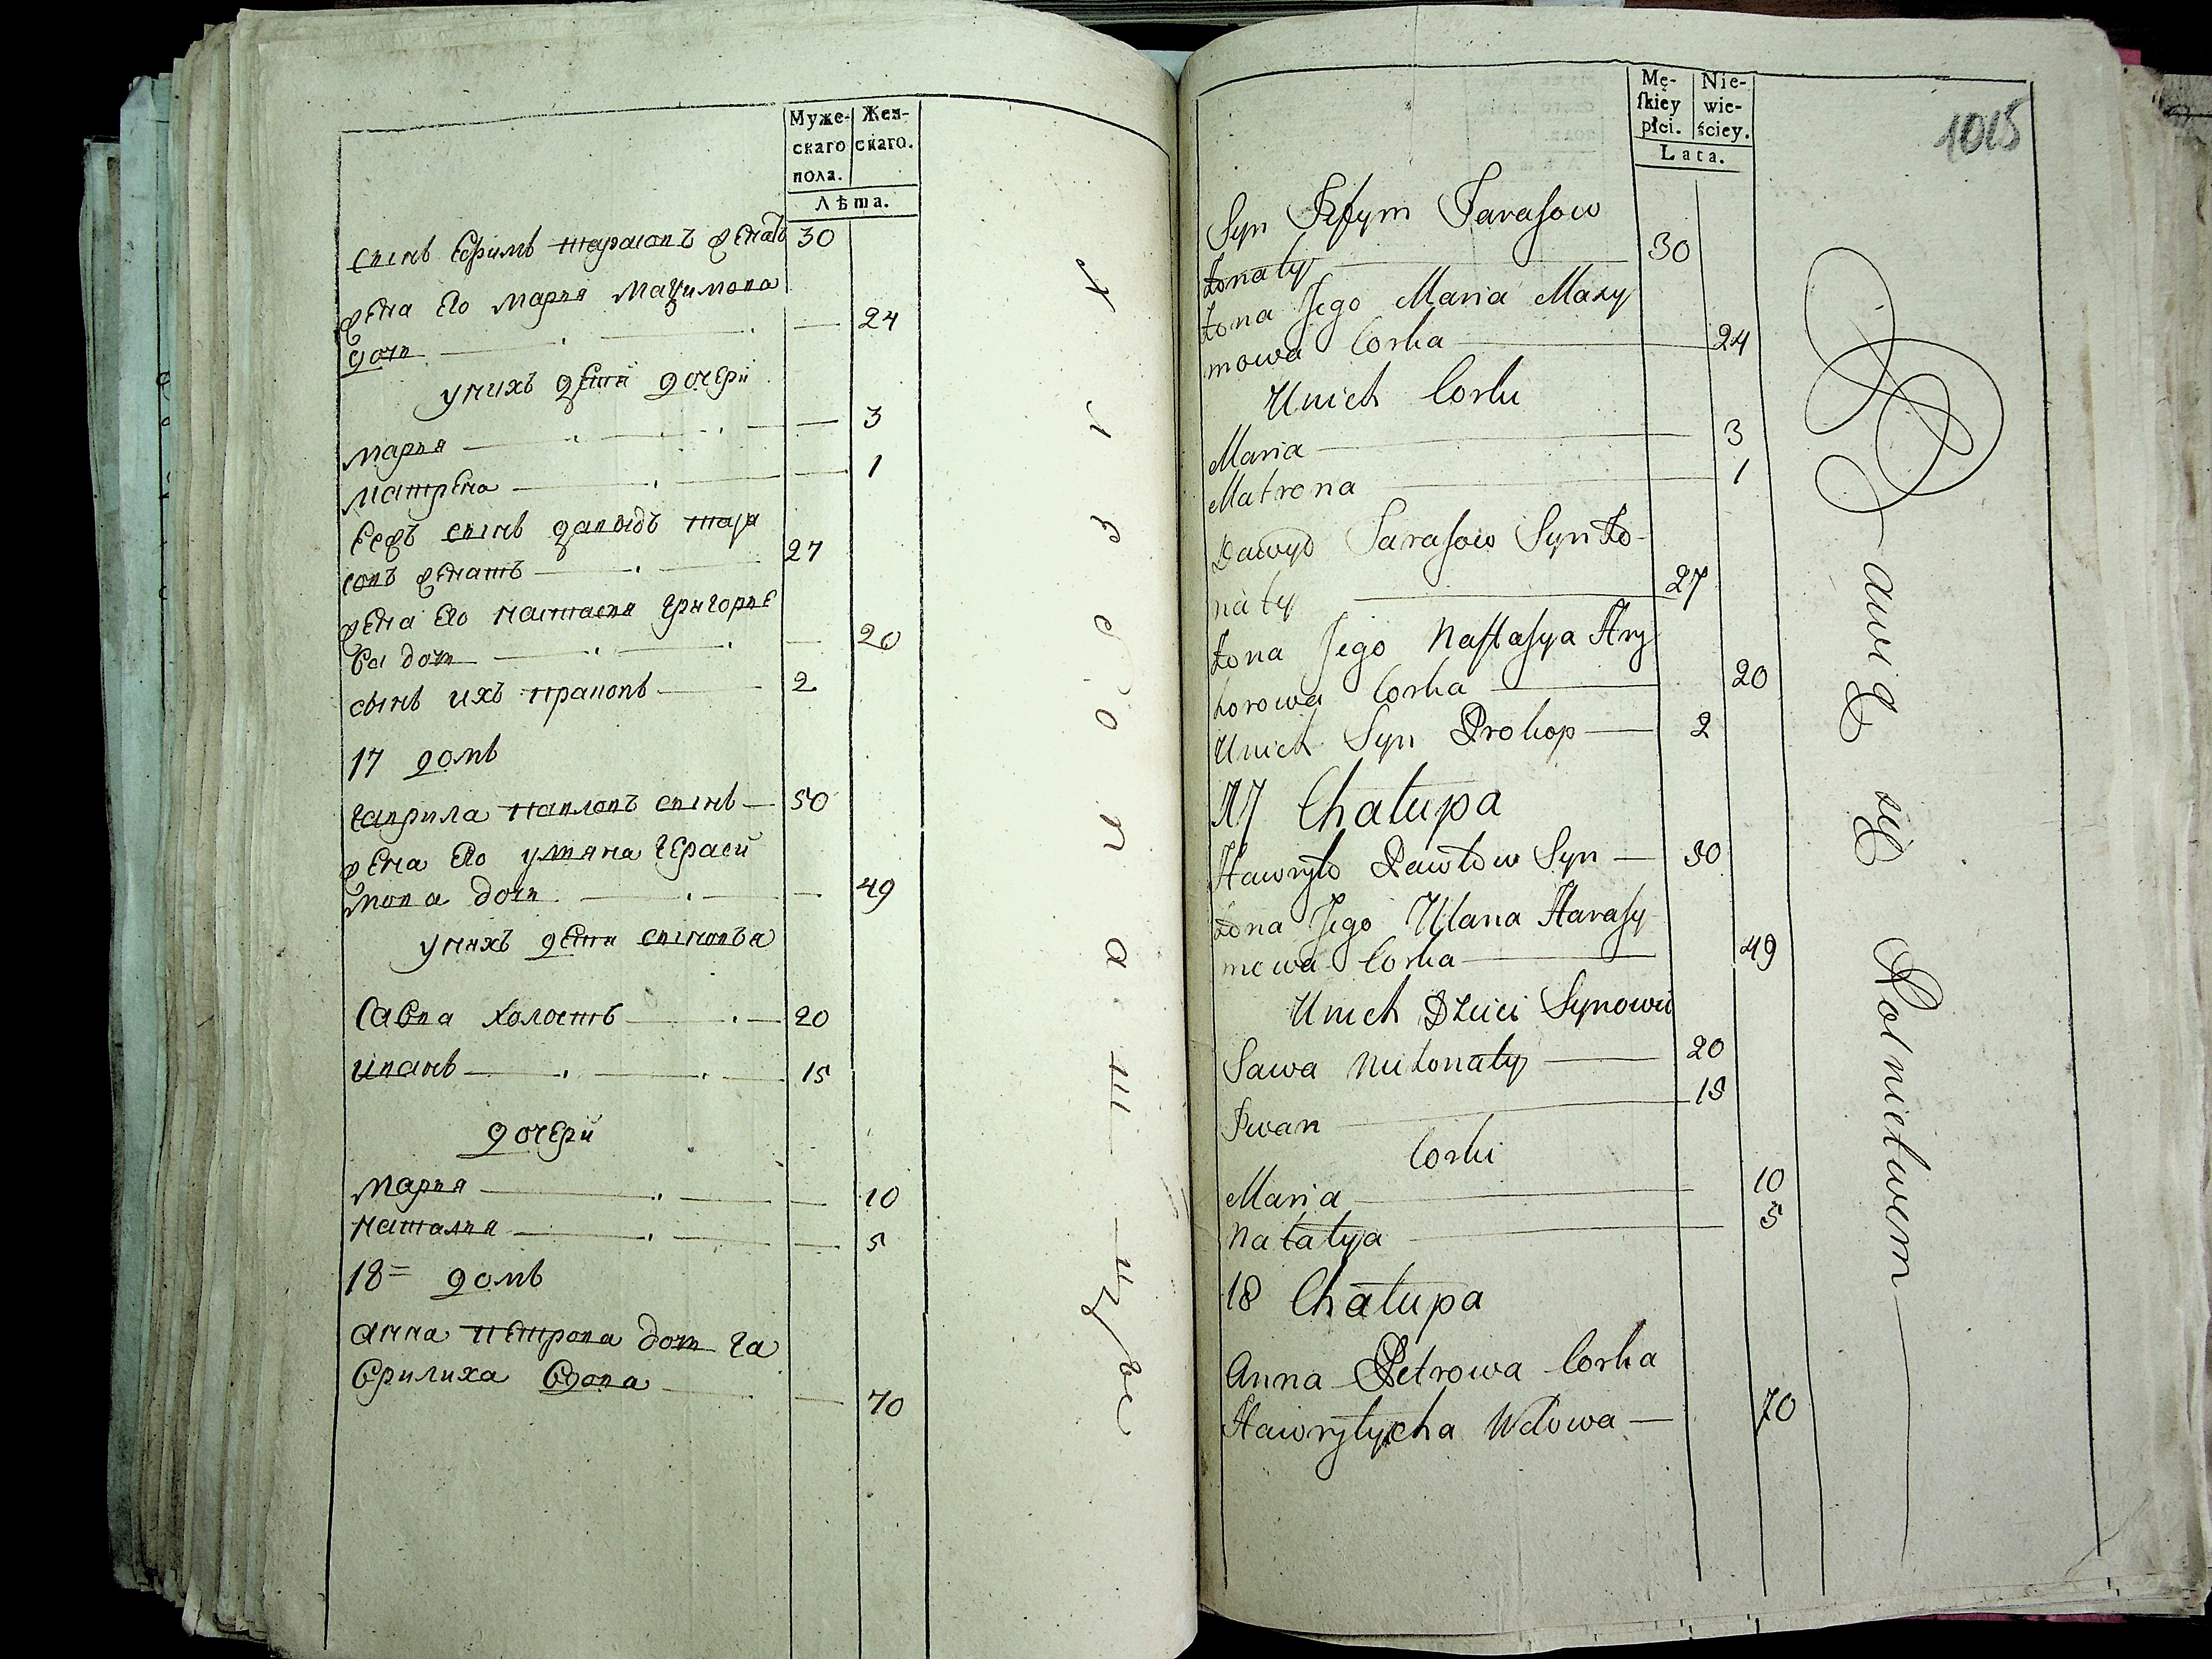 Муже-
скаго
пола.
Жен-
скаго.
Лѣта.
сынъ Ефимъ тарасовъ женатъ 30
жена Его Марья Мазимова
дочь 24
у нихъ дети дочери
марья 3
матрена 1
Ееѳъ сынъ давыдъ тара
совъ женатъ 27
жена Его настасья Григорье
ва дочь 20
сынъ ихъ прапопъ 2
17 домъ
гаврила павловъ сынъ 50
жена Его уляна Гераси
мова дочь 49
у нихъ дети сыновья
савва холостъ 20
иванъ 15
дочери
марья 10
наталья 5
18 домъ
анна петрова дочь га
врилиха вдова 70
Mę-
ſkiey
płci.
Nie-
wie-
ściey.
Lata.
1015
Syn Jefym Taraſow
żonaty 30
żona Jego Maria Maxy
mowa Corka 24
U nich Corki
Maria 3
Matrona 1
Dawyd Taraſow Syn żo-
naty 27
żona Jego Naſtaſya Hry
horowa Corka 20
U nich Syn Prokop 2
17 Chałupa
Hawryło Pawłow Syn 50
żona Jego Ulana Haraſy
mowa Corka 49
U nich Dzieci Synowie
Sawa Nieżonaty 20
Iwan 15
Corki
Maria 10
Natalya 5
18 Chałupa
Anna Petrowa Corka
Hawryłycha Wdowa 70
Bawią się Rolnictwem